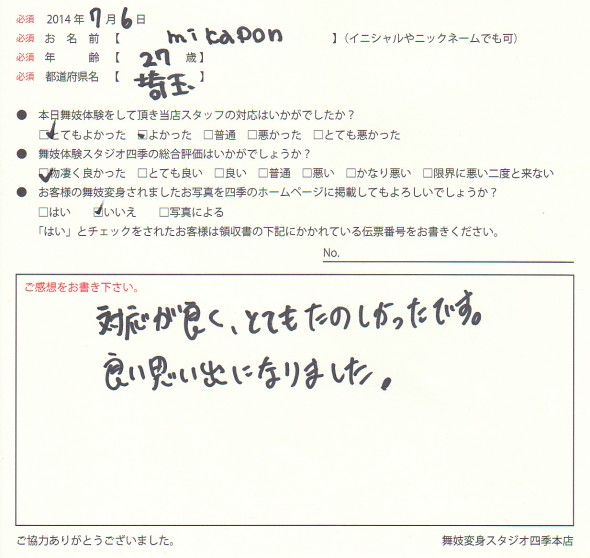 必須 2014年7月6日
必須 お 名 前 【 mikapon 】(イニシャルやニックネームでも可)
必須 年 齢 【 27 歳】
必須 都道府県名 【 埼玉
● 本日舞妓体験をして頂き当店スタッフの対応はいかがでしたか?
☑とてもよかった ☑よかった □普通 □悪かった □とても悪かった
● 舞妓体験スタジオ四季の総合評価はいかがでしょうか?
☑物凄く良かった □とても良い □良い □普通 □悪い □かなり悪い □限界に悪い二度と来ない
● お客様の舞妓変身されましたお写真を四季のホームページに掲載してもよろしいでしょうか?
□はい ☑いいえ □写真による
「はい」とチェックをされたお客様は領収書の下記にかかれている伝票番号をお書きください。
No.
ご感想をお書き下さい。
対応が良く、とてもたのしかったです。
良い思い出になりました。
ご協力ありがとうございました。 舞妓変身スタジオ四季本店